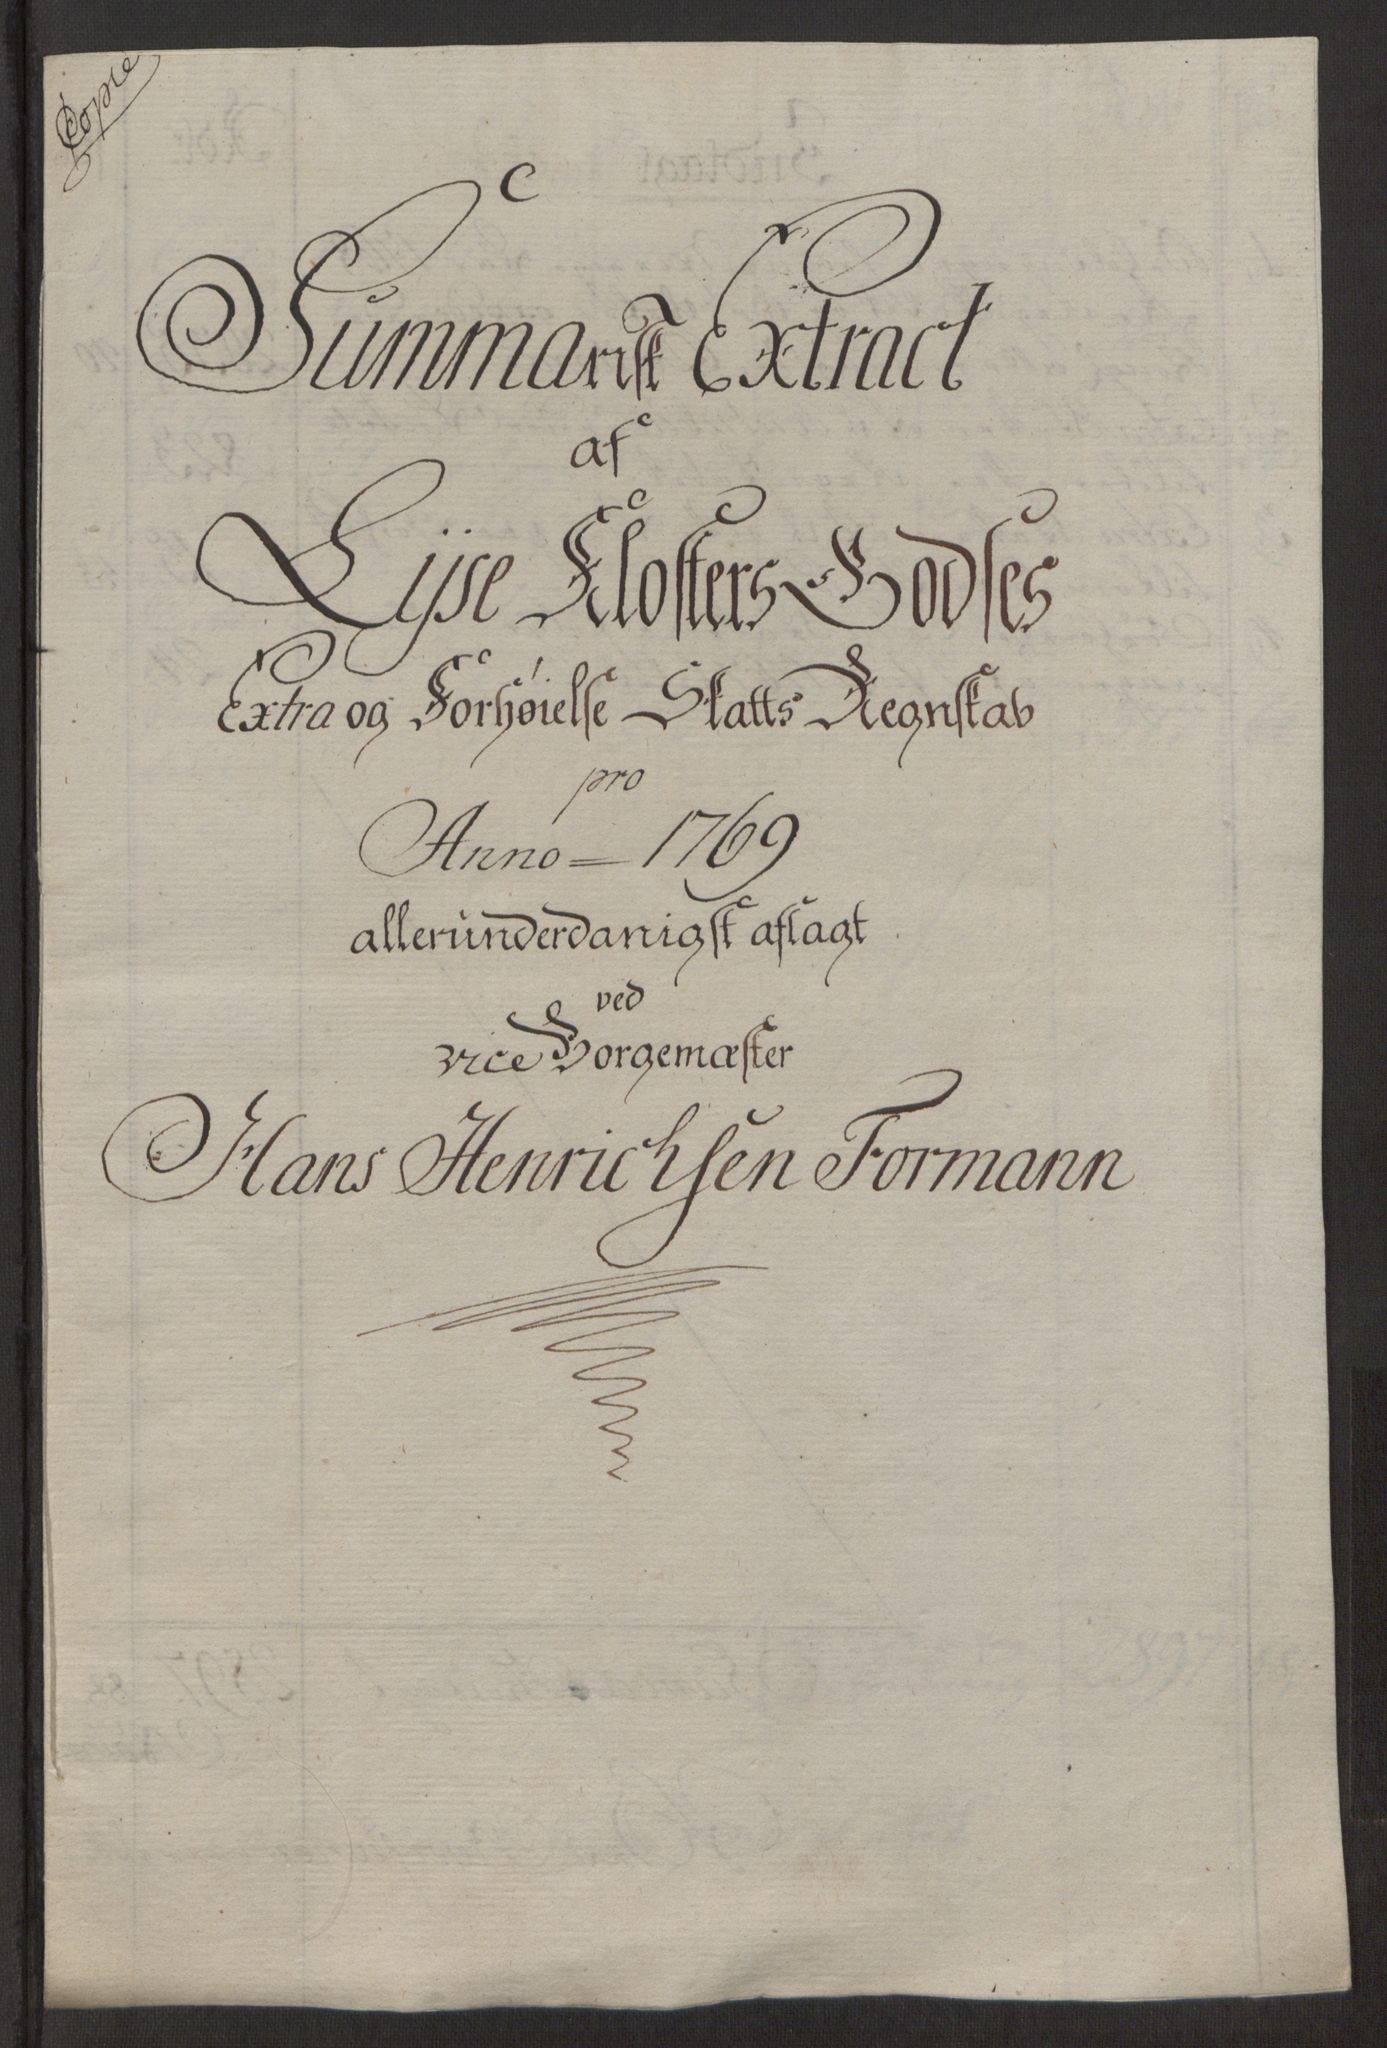 Copie
Summarisk Extract
af
Lyse Klosters Godses
Extra og Forhøielse Skatts Regnskab
pro
Anno = 1769
allerunderdanigst aflagt
ved
vice Borgemæster
Hans Henrichsen Formann